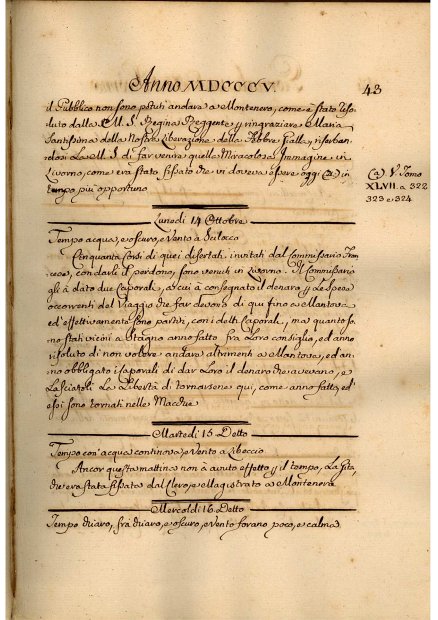 Anno MDCCCV.
43
il Pubblico non sono potuti andare a Montenero, come è stato riso-
luto dalla M. S. Regina Reggente, e ringraziare Maria
Santissima della Nostra Liberazione della Febbre Gialla, riserban-
dosi La M. S. di far venire quella Miracolosa Immagine in
Livorno, come era stato fissato che vi doveva essere oggi (a) in
tempo più opportuno
(a) V. Tomo
XLVII. a 322
323 e 324
Lunedì 14 Ottobre
Tempo acqua, e oscuro, e Vento a Scilocco
Cinquanta Corsi di quei disertati, invitati dal Commissario Fran-
cese, con darle il perdono, sono venuti in Livorno. Il Commissario
gli à dato due Caporali, a cui à consegnato il denaro p le spese
occorrenti del Viaggio che far devono di qui fino a Mantova
ed effettivamente sono partiti, con i detti Caporali, ma quanto so-
no stati vicini a Stagno anno fatto fra Loro consiglio, ed anno
risoluto di non volere andare altrimenti a Mantova, ed an-
no obbligato i Caporali di dar Loro il denaro che avevano, e
Lasciatoli La Libertà di tornarsene qui, come anno fatto, ed
essi sono tornati nelle Macchie
Martedì 15 Detto
Tempo con acqua continova, e Vento a Libeccio
Ancor questa mattina non à avuto effetto p il tempo, La Gita,
che era stata fissata dal Clero, e Magistrato a Montenero
Mercoldì 16 Detto
Tempo chiaro, fra chiaro, e oscuro, e vento forano poco, e calma